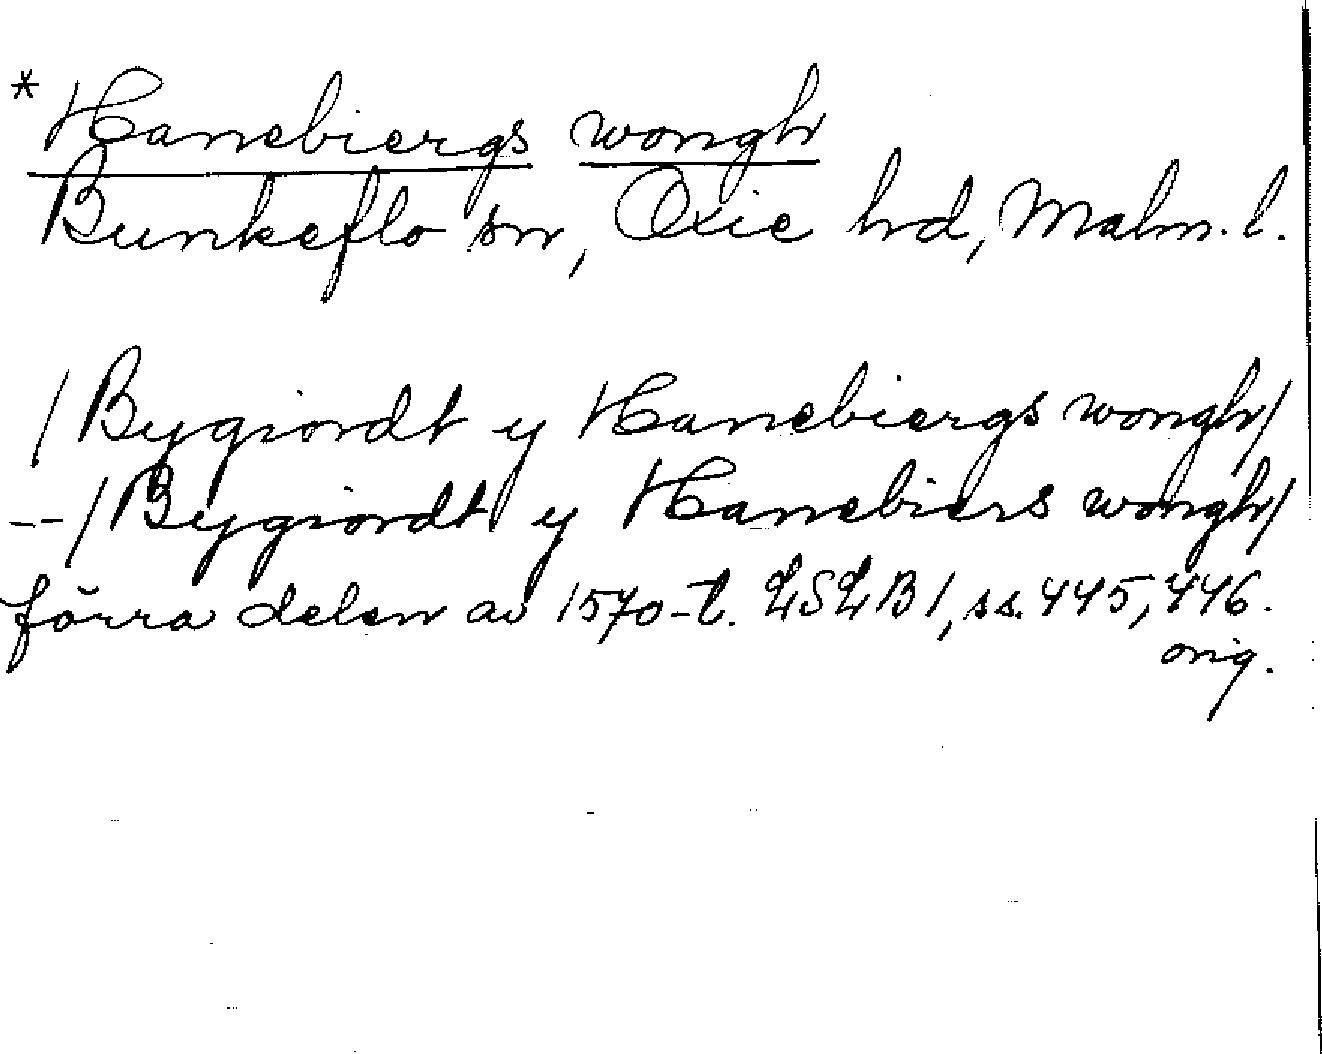 * Hanebiergs wongh
Bunkeflo sn, Oxie hd, Malm. l.
/Bygiordt y Hanebiergs wongh/
--/Bygiordt y Hanebiers wongh/
förra delen av 1570-t. LSLB1, ss. 445, 446.
orig.